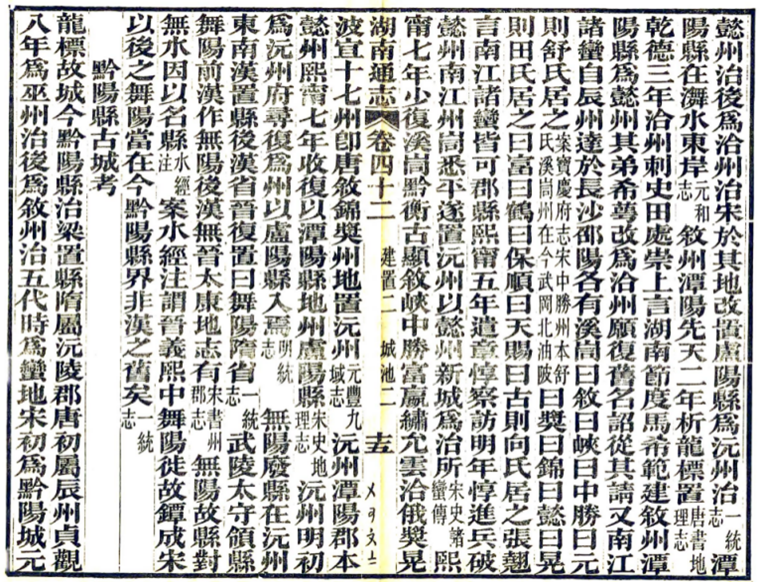 懿州治後爲洽州治宋於其地改置盧陽縣爲沅州治一統志潭
陽縣在灊水東岸元和志敘州潭陽先天二年析龍標置唐書地理志
乾德三年洽州刺史田處崇上言湖南節度馬希範建敘州潭
陽縣爲懿州其弟希蕚改爲洽州願復舊名詔從其請又南江
諸蠻自辰州達於長沙邵陽各有溪峝曰敘曰峽曰中勝曰元
則舒氏居之案寶慶府志宋中勝州本舒氏溪峝州在今武岡北油陂曰奬曰錦曰懿曰晃
則田氏居之曰富曰鶴曰保順曰天賜曰古則向氏居之張翹
言南江諸蠻皆可郡縣熙甯五年遣章惇察訪明年惇進兵破
懿州南江州峝悉平遂置沅州以懿州新城爲治所宋史諸蠻傳熙
甯七年少復溪峝黔衡古顯敘峽中勝富嬴繡允雲洽俄奬晃
湖南通志 卷四十二 建置二 城池二 十五
波宜十七州卽唐敘錦奬州地置沅州元豐九域志沅州潭陽郡本
懿州熙甯七年收復以潭陽縣地州盧陽縣宋史地理志沅州明初
爲沅州府尋復爲州以盧陽縣入焉明統志無陽廢縣在沅州
東南漢置縣後漢省晉復置曰舞陽隋省一統志武陵太守領縣
舞陽前漢作無陽後漢無晉太康地志有宋書州郡志無陽故縣對
無水因以名縣水經注案水經注謂晉義熙中舞陽徙故鐔成宋
以後之舞陽當在今黔陽縣界非漢之舊矣一統志
黔陽縣古城考
龍標故城今黔陽縣治梁置縣隋屬沅陵郡唐初屬辰州貞觀
八年爲巫州治後爲敘州治五代時爲蠻地宋初爲黔陽城元